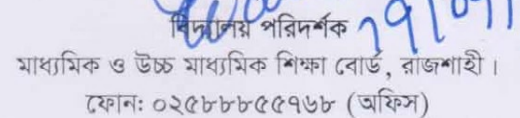 বিদ্যালয় পরিদর্শক
মাধ্যমিক ও উচ্চ মাধ্যমিক শিক্ষা বোর্ড, রাজশাহী ।
ফোন: ০২৫৮৮৮৫৫৭৬৮ (অফিস)